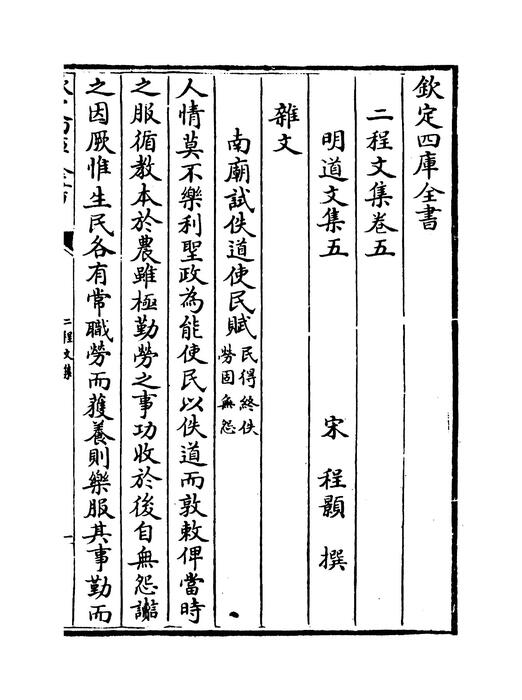 欽定四庫全書
二程文集卷五
明道文集五
宋 程顥 撰
雜文
南廟試佚道使民賦 民得終佚
勞固無怨
人情莫不樂利聖政為能使民以佚道而敦敕俾當時
之服循教本於農雖極勤勞之事功收於後自無怨讟
之因厥惟生民各有常職勞而獲養則樂服其事勤而
二程文集
一